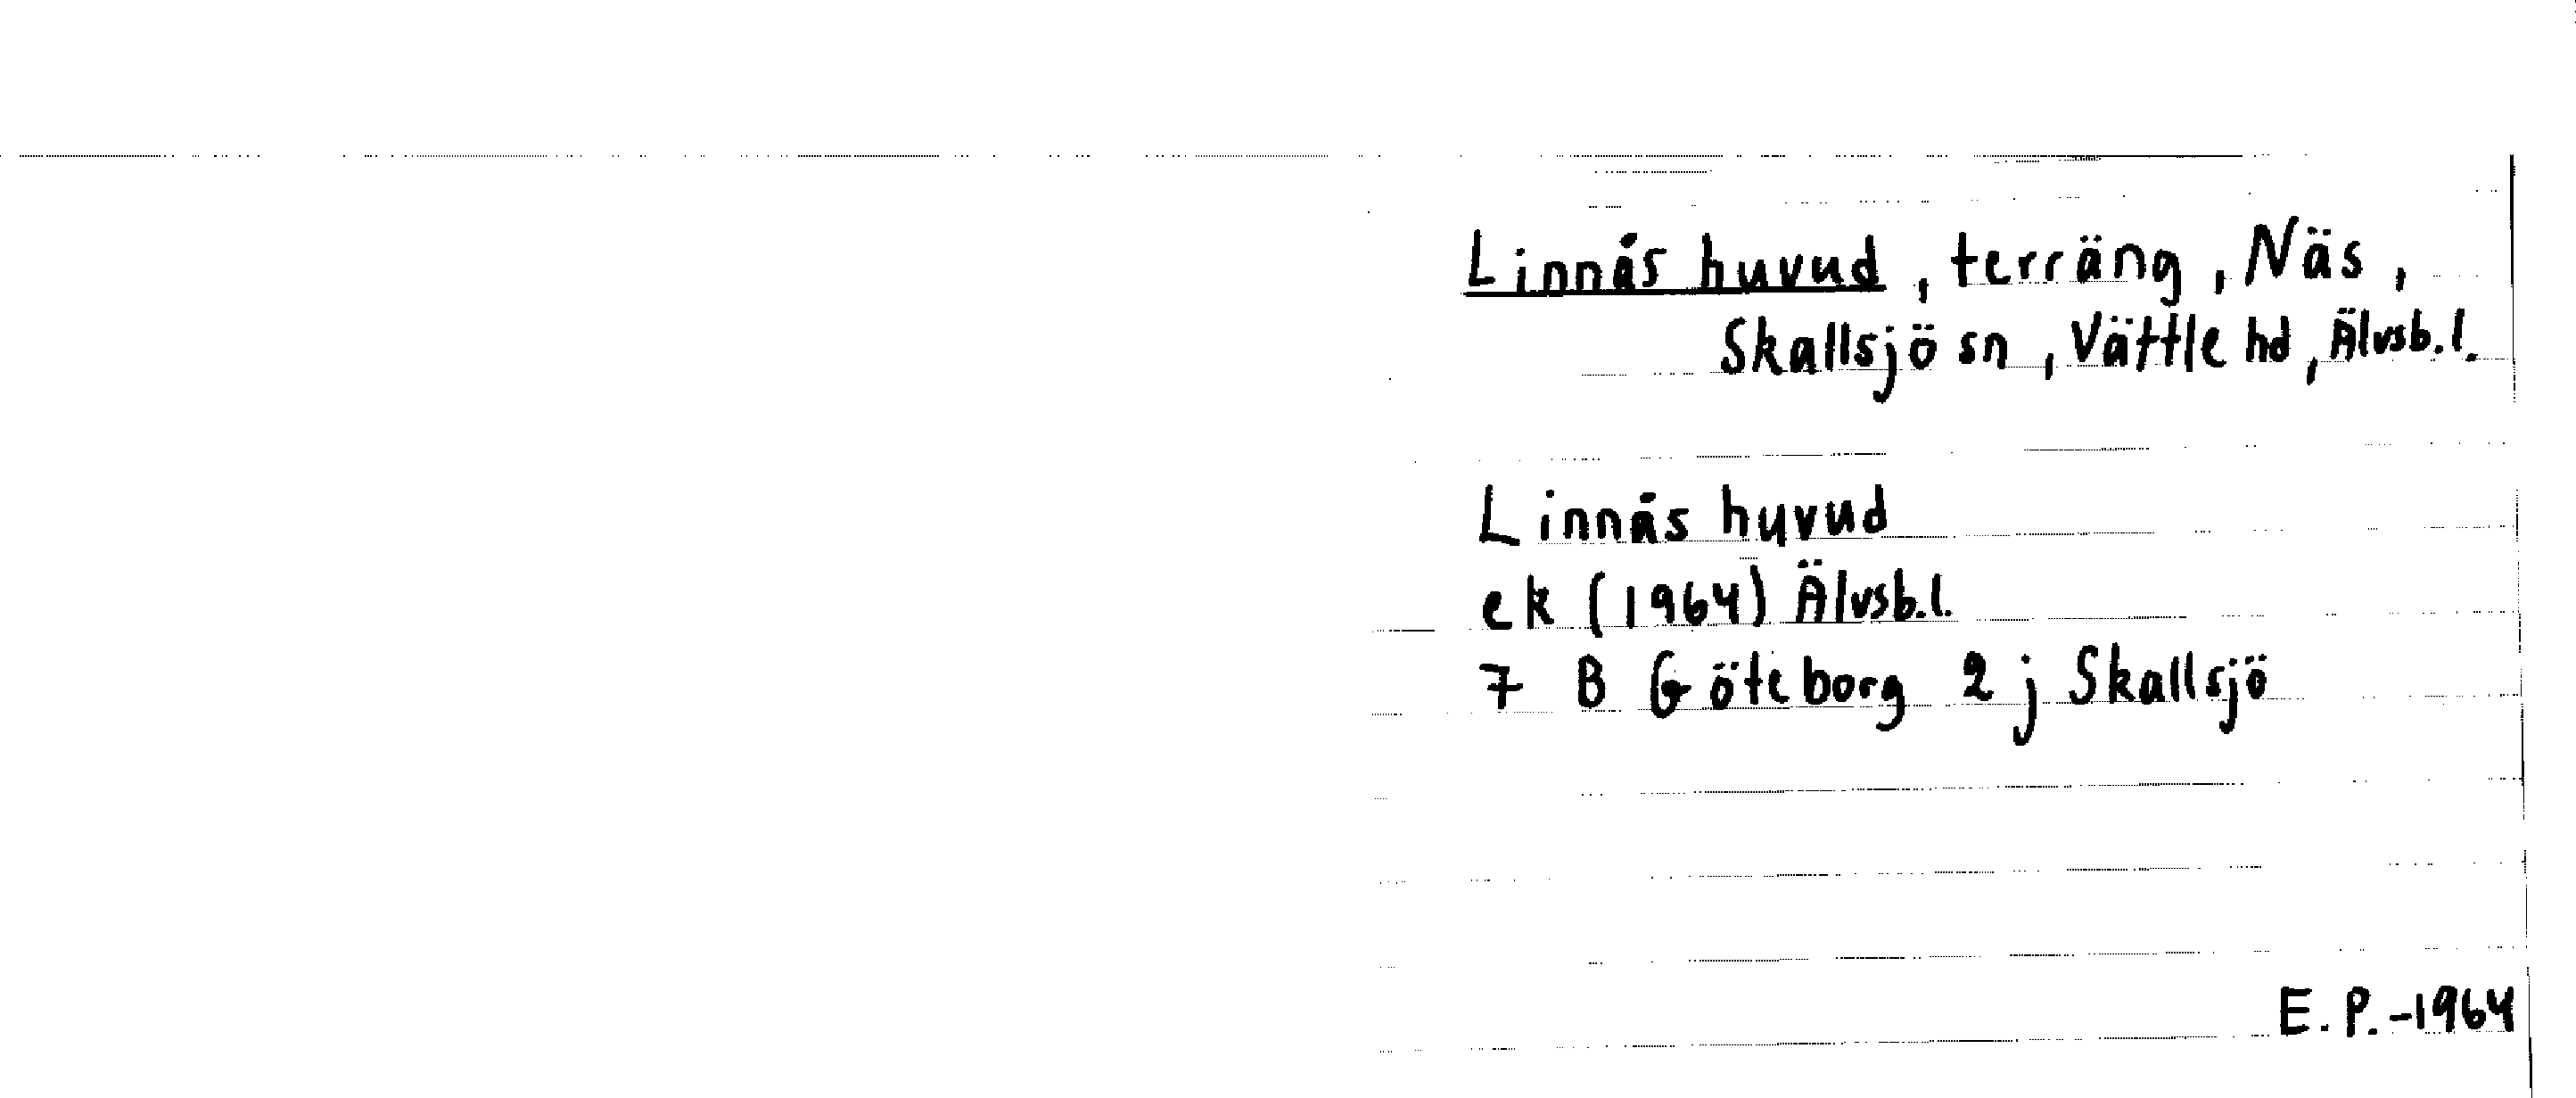 Linnås huvud, terräng, Näs,
Skallsjö sn, Vättle hd, Älvsb.l.
Linnås huvud
ek (1964) Älvsb.l.
7 B Göteborg 2 j Skallsjö
E.P.-1964